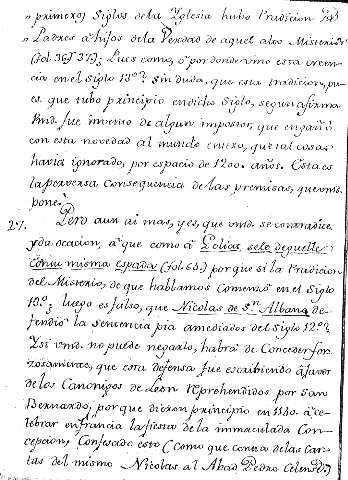 „ primeros Siglos dela Yglesia hubo tradicion de
„ Padres a hijos dela Verdad de aquel alto Misterio"
(fol. 36 y 37.); Pues como, o por donde vino esta creen-
cia en el Siglo 13.º? Sin duda, que esta tradicion, pu-
es, que tubo principio en dicho Siglo, segun afirma
Vmd. fue invento de algun impostor, que engañó
con esta novedad al mundo entero, que tal cosa
havia ignorado, por espacio de 1200. años. Esta es
la perversa consequencia de las premisas, que vmd.
pone.
27. Pero aun ai mas, y es, que vmd. se contradice,
y da ocasion, a que como á Golias, se le deguelle
con su misma espada (fol. 66.) porque si la tradicion
del Misterio, de que hablamos comenzó en el Siglo
13.º; luego es falso, que Nicolas de S.n Albano de-
fendió la Sentencia pia amediados del Siglo 12.º?
Y si vmd. no puede negarlo, habrá de Conceder for-
zosamente, que esta defensa fue escribiendo á favor
de los Canonigos de Leon reprehendidos por San
Bernardo, por que dieron principio en 1140. á ce-
lebrar en francia la fiesta de la immaculada Con-
cepcion; Confesado esto (como que consta de las Car-
tas del mismo Nicolas al Abad Pedro Celense)